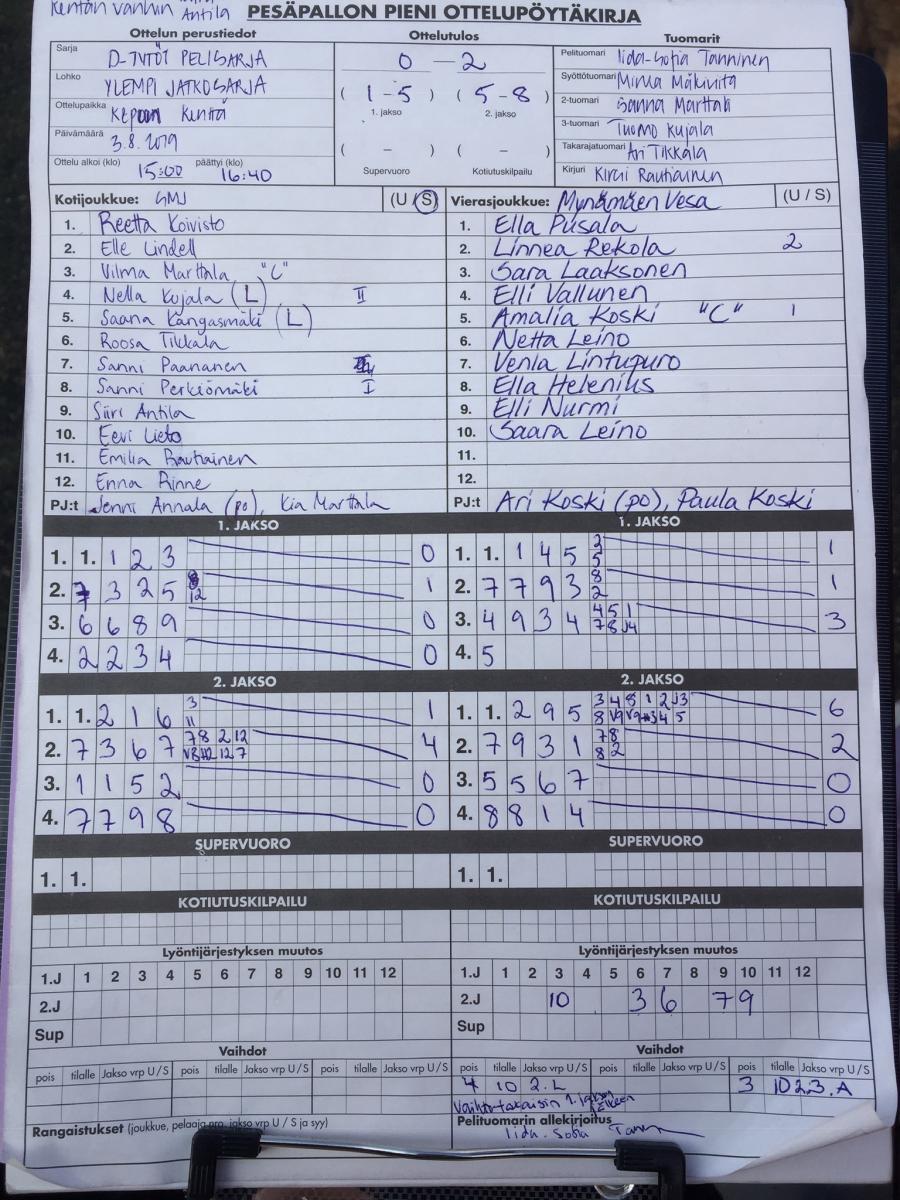 Kentän vanhin Antila
PESÄPALLON PIENI OTTELUPÖYTÄKIRJA
Ottelun perustiedot
Sarja D-TYTÖT PELISARJA
Lohko YLEMPI JATKOSARJA
Ottelupaikka Kentta
Päivämäärä 3.8.2019
Ottelu alkoi (klo) 15:00 päättyi (klo) 16:40
Ottelutulos
0 — 2
( 1-5 ) ( 5-8 )
1. jakso 2. jakso
( - ) ( - )
Supervuoro Kotiutuskilpailu
Tuomarit
Pelituomari Iida-Sofia Tanninen
Syöttötuomari Minea Mäkivita
2-tuomari Sanna Marttali
3-tuomari Tuomo Kujala
Takarajatuomari Ari Tikkala
Kirjuri Kirsi Rautiainen
Kotijoukkue: SMJ (U / S)
1. Reetta Koivisto
2. Elle Lindell
3. Vilma Marttala "C"
4. Nella Kujala (L) II
5. Saana Kangasmäki (L)
6. Roosa Tikkala
7. Sanni Paananen
8. Sanni Perkiömäki I
9. Siiri Antila
10. Eevi Lieto
11. Emilia Rautiainen
12. Enna Rinne
PJ:t Jenni Annala (po), Kia Marttala
Vierasjoukkue: Mynämäen Vesa (U / S)
1. Ella Pusala
2. Linnea Rekola 2
3. Sara Laaksonen
4. Elli Vallunen
5. Amalia Koski "C" 1
6. Netta Leino
7. Venla Lintupuro
8. Ella Helenius
9. Elli Nurmi
10. Saara Leino
11.
12.
PJ:t Ari Koski (po), Paula Koski
1. JAKSO
1. 1. 1 2 3 0
2. 7 3 2 5 12 1
3. 6 6 8 9 0
4. 2 2 3 4 0
1. JAKSO
1. 1. 1 4 5 2 5 1
2. 7 7 9 3 8 2 1
3. 4 9 3 4 4 5 1 7 8 J4 3
4. 5
2. JAKSO
1. 1. 2 1 6 3 11 1
2. 7 3 6 7 7 8 2 12 12 7 4
3. 1 1 5 2 0
4. 7 7 9 8 0
2. JAKSO
1. 1. 2 9 5 3 4 8 1 2 J3 6
2. 7 9 3 1 7 8 8 2 2
3. 5 5 6 7 0
4. 8 8 1 4 0
SUPERVUORO
1. 1.
SUPERVUORO
1. 1.
KOTIUTUSKILPAILU
KOTIUTUSKILPAILU
Lyöntijärjestyksen muutos
1.J 1 2 3 4 5 6 7 8 9 10 11 12
2.J
Sup
Lyöntijärjestyksen muutos
1.J 1 2 3 4 5 6 7 8 9 10 11 12
2.J 10 3 6 7 9
Sup
Vaihdot
pois tilalle Jakso vrp U / S pois tilalle Jakso vrp U / S pois tilalle Jakso vrp U / S
Vaihdot
pois tilalle Jakso vrp U / S pois tilalle Jakso vrp U / S pois tilalle Jakso vrp U / S
4 10 2.L 3 10 2.3.A
Vaihto takaisin 1. jakson jälkeen
Rangaistukset (joukkue, pelaaja nro, jakso vrp U / S ja syy)
Pelituomarin allekirjoitus
Iida-Sofia